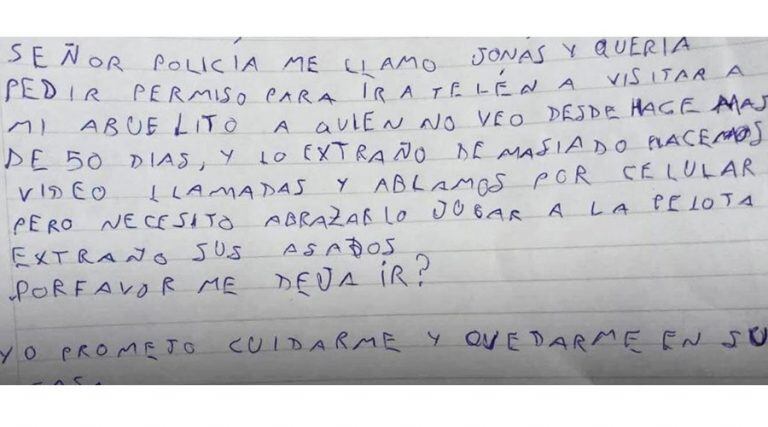 SEÑOR POLICÍA ME LLAMO JONAS Y QUERIA
PEDIR PERMISO PARA ÍR A TELÉN A VISITAR A
MI ABUELITO A QUIEN NO VEO DESDE HACE MAS
DE 50 DIAS, Y LO EXTRAÑO DEMASIADO HACEMOS
VIDEO LLAMADAS Y ABLAMOS POR CELULAR
PERO NECESITO ABRAZARLO JUGAR A LA PELOTA
EXTRAÑO SUS ASADOS
PORFAVOR ME DEJA ÍR?
YO PROMETO CUIDARME Y QUEDARME EN SU